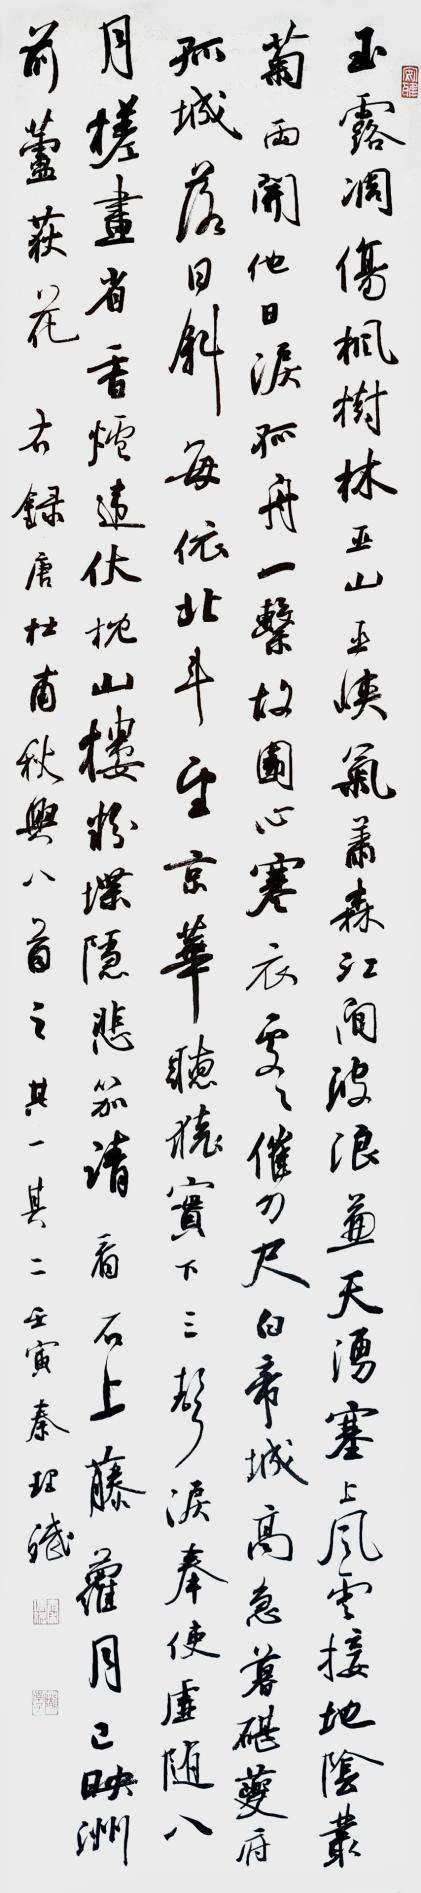 玉露凋傷楓樹林巫山巫峽氣蕭森江間波浪兼天湧塞上風雲接地陰叢
菊兩開他日淚孤舟一繫故園心寒衣處處催刀尺白帝城高急暮砧夔府
孤城落日斜每依北斗望京華聽猿實下三聲淚奉使虛随八
月槎畫省香爐違伏枕山樓粉堞隱悲笳請看石上藤蘿月已映洲
前蘆荻花右録唐杜甫秋興八首之其一其二壬寅秦理斌